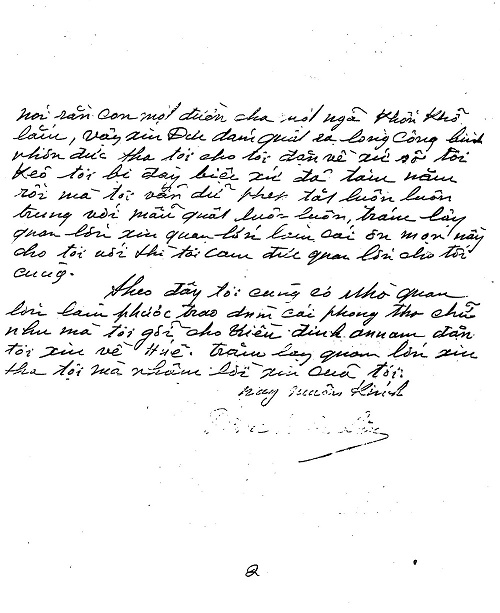 nơi rằn con một đường cha một ngã khốn khổ
lắm, vậy xin Đức đám quất ra lòng Công bình
nhơn đức tha tội cho tôi đặn về xứ sở tôi
kẽo tôi bị đày biếc xứ đã tám năm
rồi mà tôi vẫn dữ phép tắt luôn luôn
trung với mẫu quất luôn luôn, trăm lạy
quan lớn xin quan lớn làm cái ơn mọn này
cho tôi với thì tôi cam đức quan lớn cho tới
cùng.
Theo đây tôi cung có nhờ quan
lớn làm phước trao dùm cái phong thơ chữ
nhu mà tôi gởi cho triều đình annam đặn
tôi xin về Huế. trăm lạy quan lớn xin
tha tội mà nhậm lời xin của tôi.
nay muôn kính
2